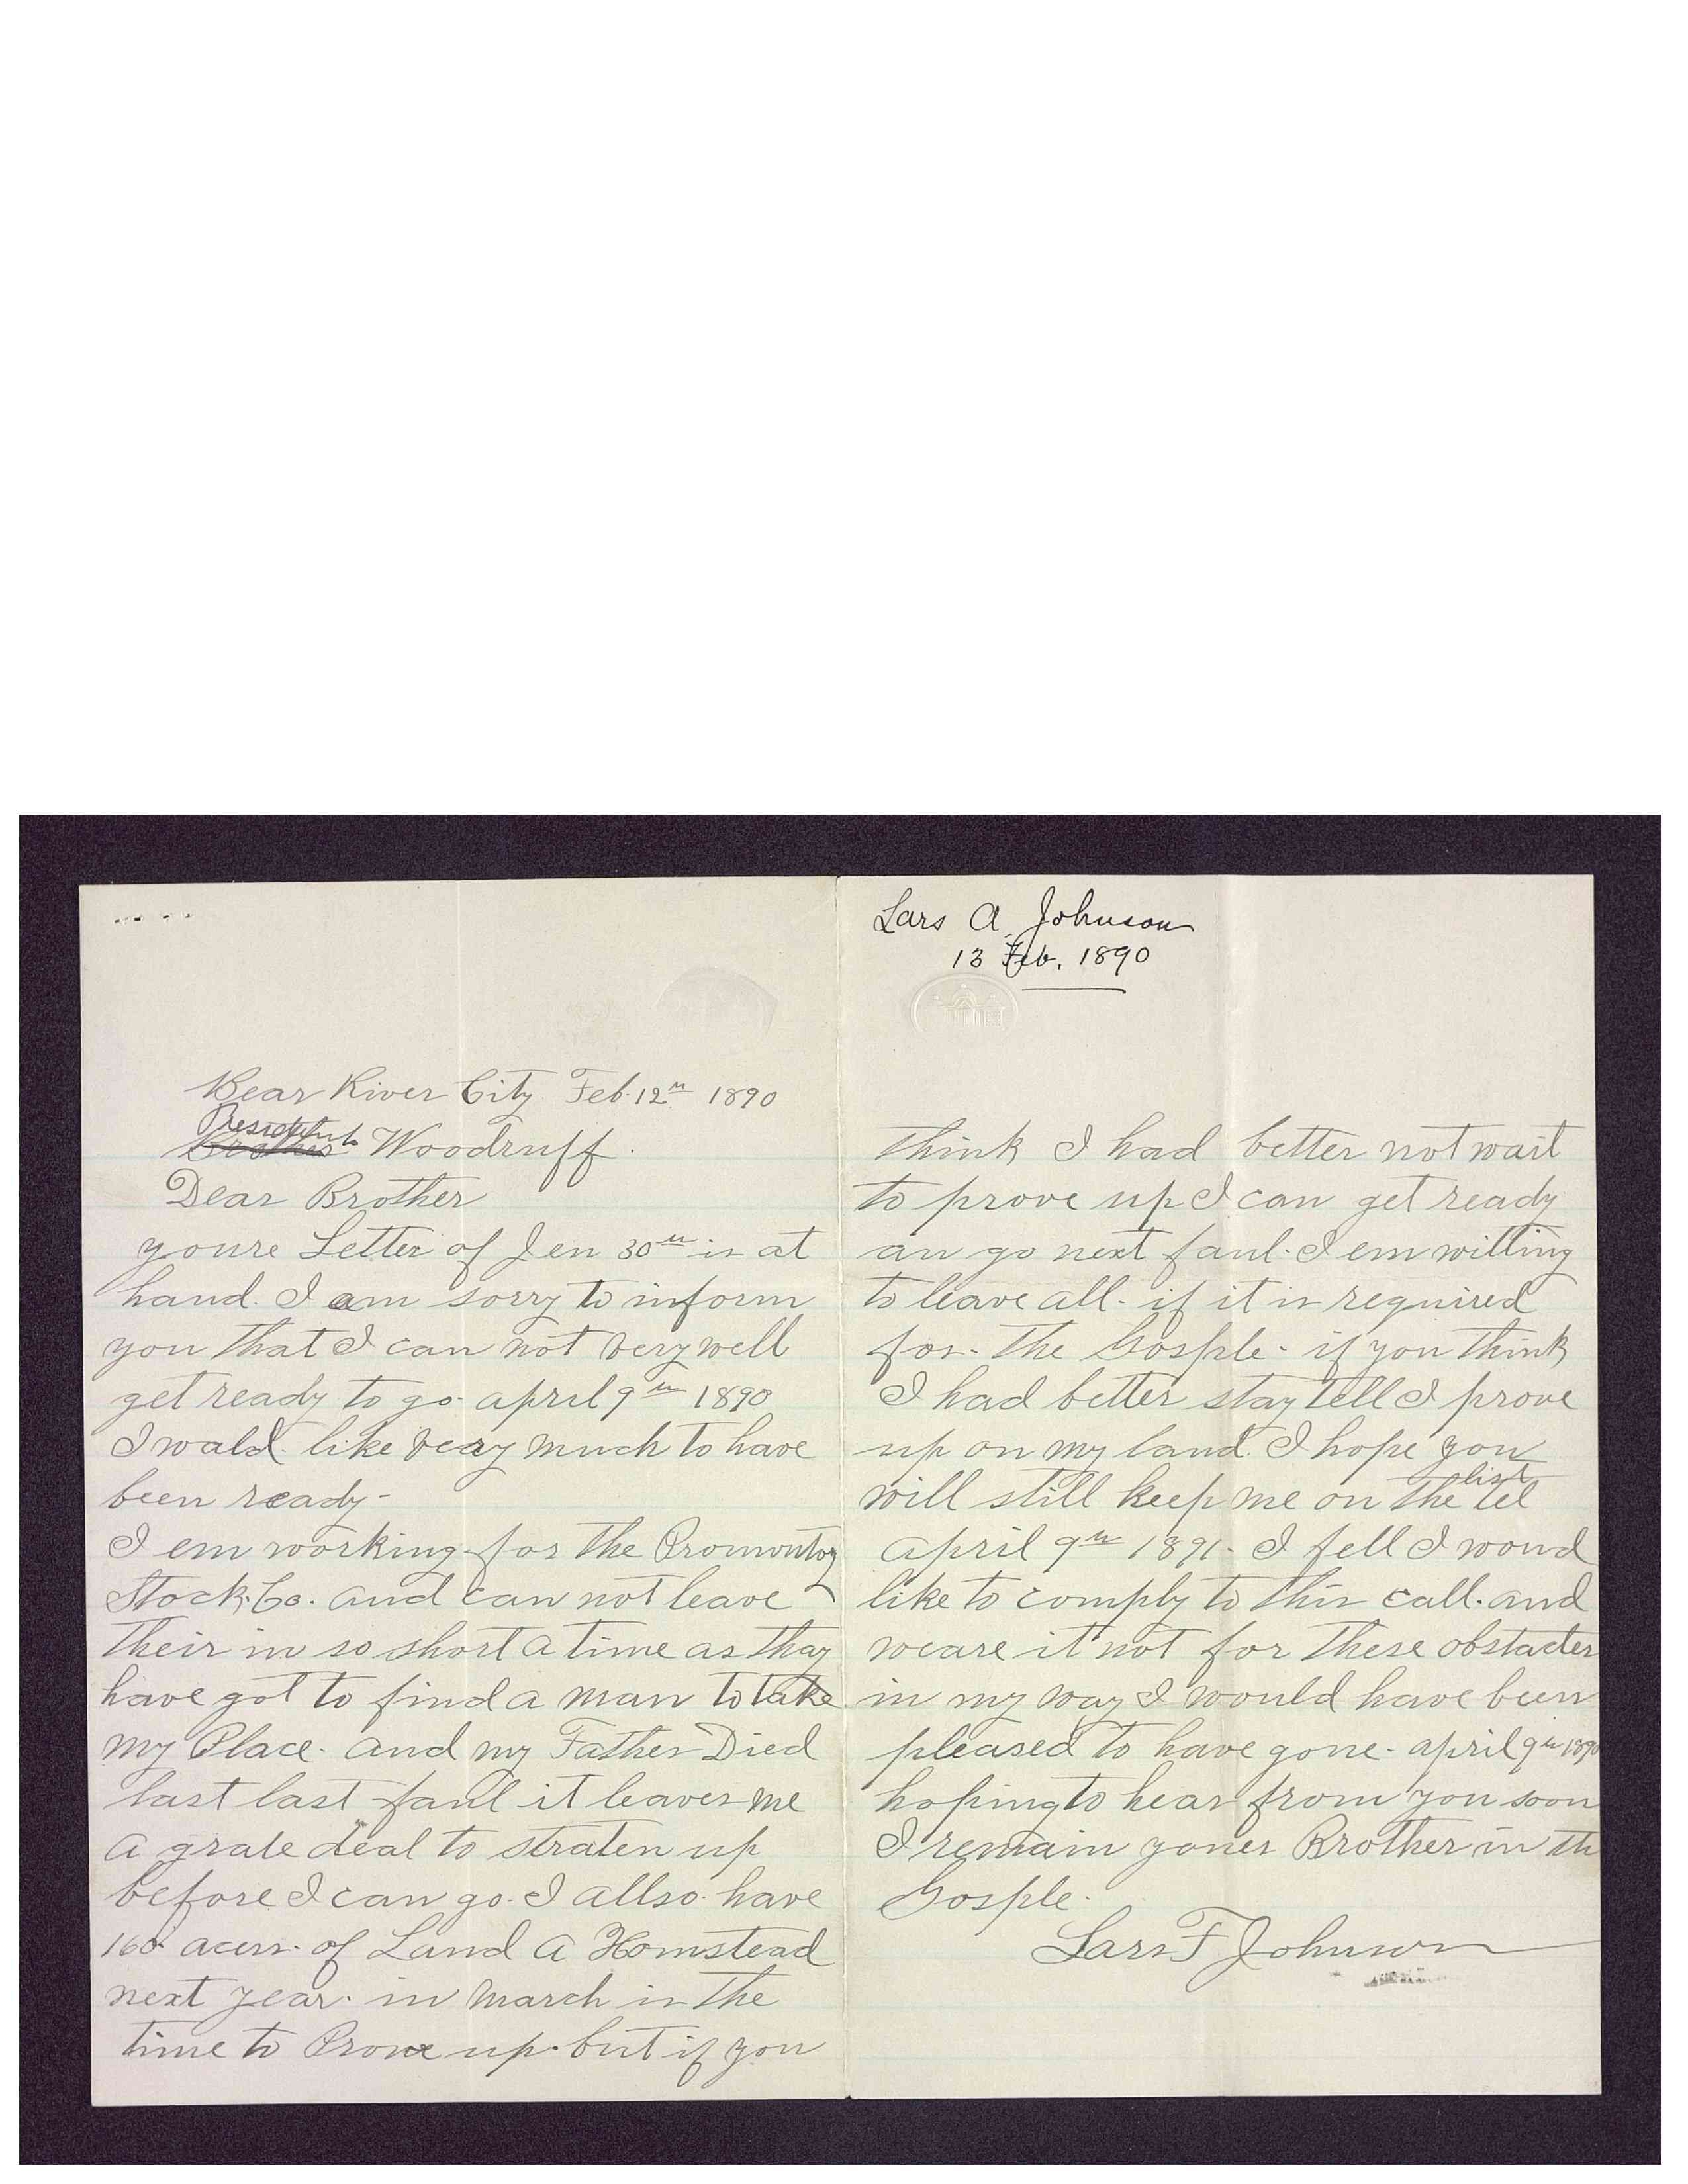 Bear River City Feb. 12th 1890
President
Brother Woodruff.
Dear Brother
youre Letter of Jen 30th is at
hand. I am sorry to inform
you that I can not very well
get ready to go april 9th 1890
I wald like veary much to have
been ready-
I em working for the Promontoy
Stock. Co. and can not leave
their in so short a time as thay
have got to find a man to take
my Place. and my Father Died
last last faul it leaves me
a grate deal to straten up
before I can go. I allso have
160 acers of Land a Homstead
next year. in march is the
time to Prove up. but if you
Lars A. Johnson
13 Feb. 1890
think I had better not wait
to prove up I can get ready
an go next faul. I em willing
to leave all. if it is required
for the Gosple. if you think
I had better stay tell I prove
up on my land. I hope you
list
will still keep me on the tel
april 9th 1891. I fell I woud
like to comply to this call. and
weare it not for these obstacles
in my way I would have been
pleased to have gone. april 9th 1890
hoping to hear from you soon
I remain youer Brother in th
Gosple.
Lars F Johnson